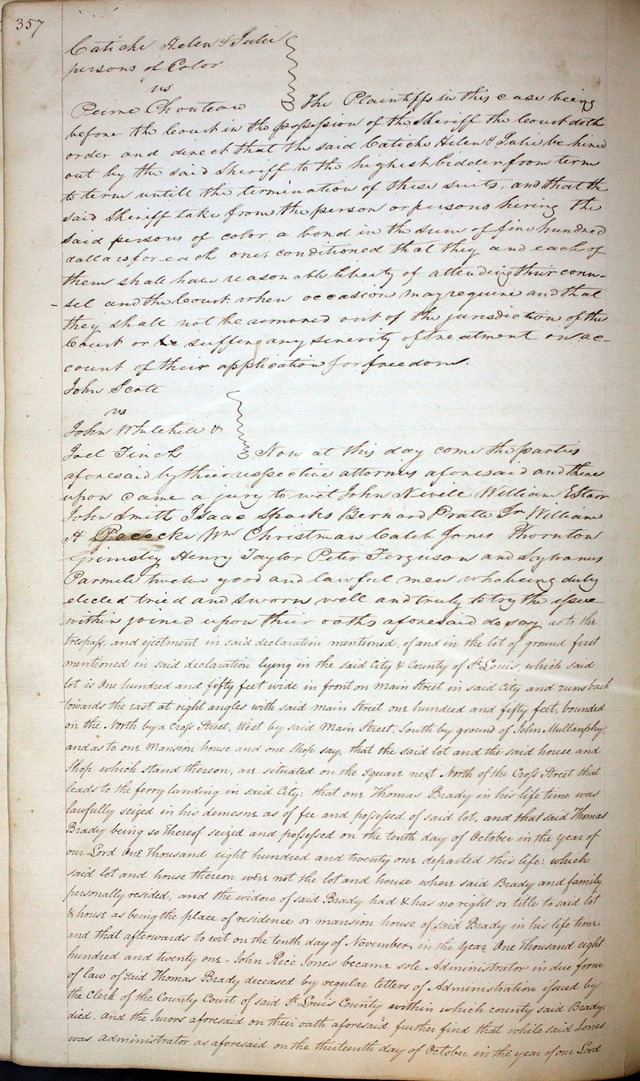 357
Catiche Helen & Julie
persons of Color
vs
Peirre Chouteau The Plaintiffs in this case being
before the Court in the possession of the Sheriff the Court doth
order and direct that the said Catiche Helen & Julie be hired
out by the said Sheriff to the highest bidder from term
to term untill the termination of these suits, and that the
said Sheriff take from the person or persons hiring the
said persons of color a bond in the sum of five hundred
dollars for each one, conditioned that they and each of
them shall have reasonable liberty of attending their coun-
sel and the Court when occasion may require and that
they shall not be removed out of the jurisdiction of the
Court or suffer any severity of treatment on ac-
count of their application for freedom.
John Scott
vs
John Whitehill &
Joel Finch Now at this day come the parties
aforesaid by their respective attornes aforesaid and there
upon came a jury to wit John Nevile William
John Smith Isaac Sparks Bernard Pratte Jr William
H Pococke Wm Christman Caleb Jones Thornton
Grimsley Henry Taylor Peter Ferguson and
twelve good and lawful men who being duly
elected tried and sworn well and truly to try the issue
within joined upon their oaths aforesaid do say as to the
trespass, and ejectment in said declaration mentioned, of and in the lot of ground first
mentioned in said declaration lying in the said City & County of St Louis, which said
lot is One hundred and fifty feet wide in front on Main Street in said City and runs back
towards the east at right angles with said main Street one hundred and fifty feet, bounded
on the North by a Cross Street, West by said Main Street, South by ground of John Mullanphy,
and as to one Mansion house and one Shop say, that the said lot and the said house and
Shop which stand thereon, are situated on the Square next North of the Cross Street that
leads to the ferry landing in said City: that one Thomas Brady in his life time was
lawfully seized in his demesne as of fee and possessed of said lot, and that said Thomas
Brady being so thereof seized and possessed on the tenth day of October in the year of
our Lord One Thousand eight hundred and twenty one departed this life: which
said lot and house thereon were not the lot and house where said Brady and family
personally resided, and the widow of said Brady had & has no right or title to said lot
& house as being the place of residence or mansion house of said Brady in his life time.
and that afterwards to wit on the tenth day of November, in the year One Thousand eight
hundred and twenty one - John Rice Jones became sole Administrator in due form
of law of said Thomas Brady deceased by regular letters of Administration issued by
the Clerk of the County Court of said St Louis County within which county said Brady
died. and the Jurors aforesaid on their oath aforesaid further find that while said Jones
was administrator as aforesaid on the thirteenth day of October in the year of our Lord